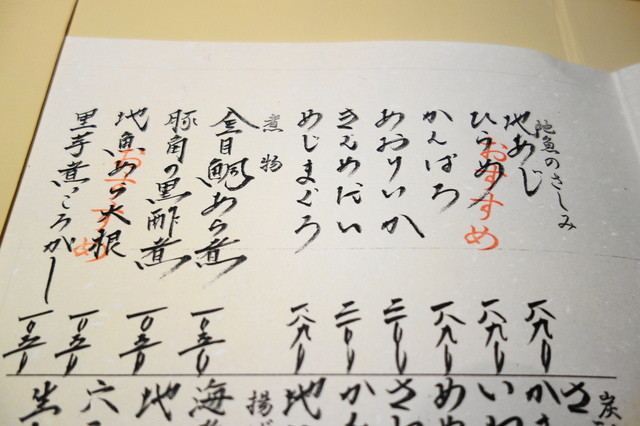 地魚のさしみ
地あじ 一八九〇
ひらめ 一八九〇
おすすめ
かんぱち 一八九〇
あおりいか 二一〇〇
きんめだい 二一〇〇
めじまぐろ 一八九〇
煮物
金目鯛あら煮 一〇五〇
豚角の黒酢煮 一〇五〇
地魚あら大根 一〇五〇
おすすめ
里芋煮っころがし 一〇五〇
炭
さ
かき
いわ
めぬ
され
かん
地
揚げ
海
地
六
生